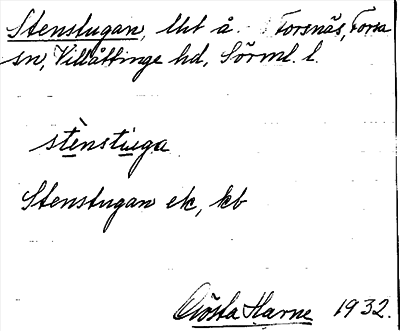 Stenstugan, lht å Forsnäs, Forsa
sn, Villåttinge hd, Sörml. l.
stènstuga
Stenstugan ek, kb
Gösta Harne 1932.